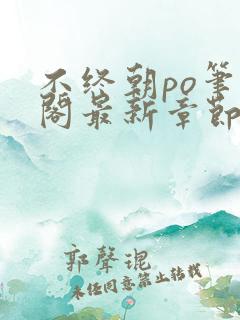 不终朝po笔
阁最新章节
郭聲琨
未经同意禁止转载